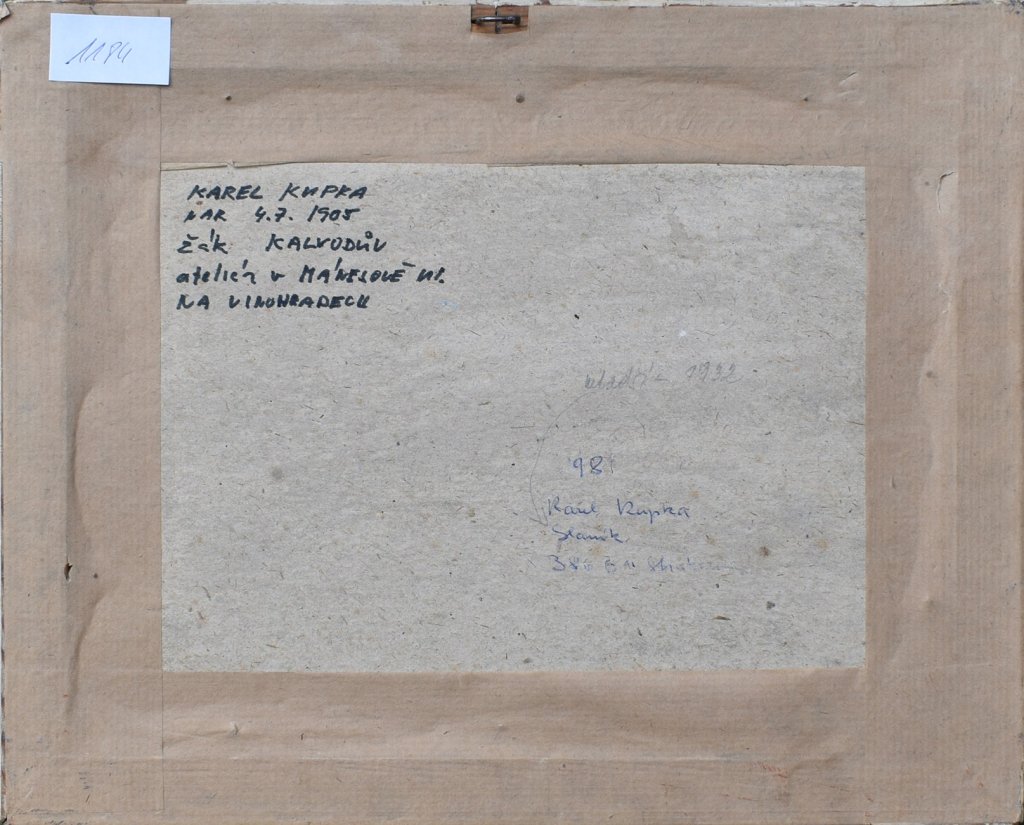 1184
KAREL KUPKA
NAR 4.7. 1905
žák KALVODŮV
ateliér v MÁNESOVĚ UL.
NA VINOHRADECH
1932
98
Karel Kupka